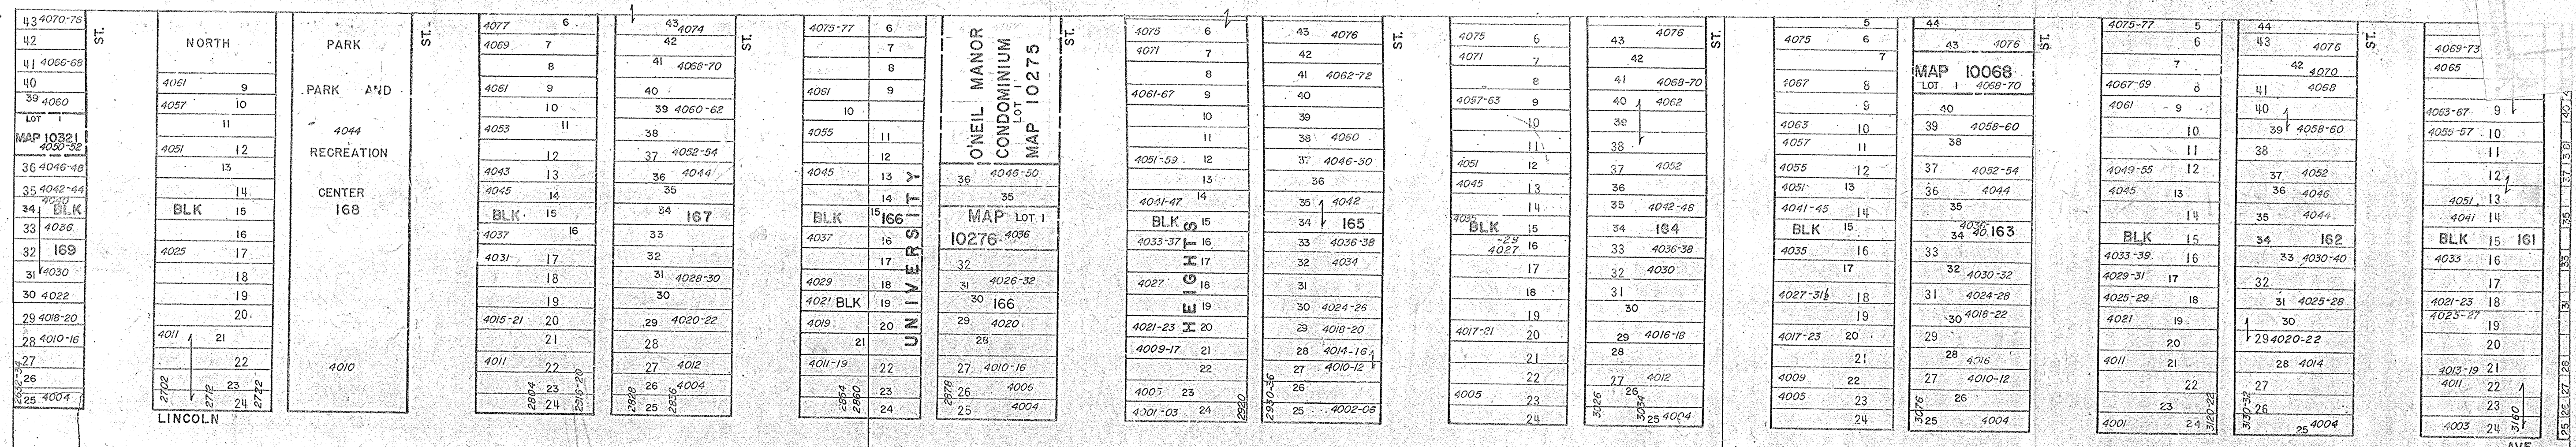 43 4070-76
42
41 4066-68
40
39 4060
LOT 1
MAP 10321
4050-52
36 4046-48
35 4042-44
4040
34 BLK
33 4036
32 169
31 4030
30 4022
29 4018-20
28 4010-16
27
26
25 4004
ST.
NORTH
4061 9
4057 10
11
4051 12
13
14
BLK 15
16
4025 17
18
19
20
4011 21
22
2702 2712 23 2722
24
LINCOLN
PARK
PARK AND
4044
RECREATION
CENTER
168
4010
ST.
4077 6
4069 7
8
4061 9
10
4053 11
12
4043 13
4045 14
BLK. 15
4037 16
4031 17
18
19
4015-21 20
21
4011 22
23
2804 24 2816-20
43 4074
42
41 4068-70
40
39 4060-62
38
37 4052-54
36 4044
35
34 167
33
32
31 4028-30
30
29 4020-22
28
27 4012
26 4004
2828 25 2836
ST.
4075-77 6
7
8
4061 9
10
4055 11
12
4045 13
14
BLK 15 166
4037 16
17
4029 18
4021 BLK 19
4019 20
21
4011-19 22
23
2854 2860 24
UNIVERSITY
O'NEIL MANOR
CONDOMINIUM
LOT 1
MAP 10275
36 4046-50
35
MAP LOT 1
10276 4036
32
31 4026-32
30 166
29 4020
28
27 4010-16
2878 26 4006
25 4004
ST.
4075 6
4071 7
8
4061-67 9
10
11
4051-59 12
13
4041-47 14
BLK 15
4033-37 16
17
4027 18
19
4021-23 20
4009-17 21
22
4005 23
4001-03 24 2920
HEIGHTS
43 4076
42
41 4062-72
40
39
38 4060
37 4046-50
36
35 4042
34 165
33 4036-38
32 4034
31
30 4024-26
29 4018-20
28 4014-16
27 4010-12
26
2930-36 25 4002-06
ST.
4075 6
4071 7
8
4057-63 9
10
11
4051 12
4045 13
14
4035
BLK 15
-29
4027 16
17
18
19
4017-21 20
21
22
4005 23
24
43 4076
42
41 4068-70
40 4062
39
38
37 4052
36
35 4042-48
34 164
33 4036-38
32 4030
31
30
29 4016-18
28
27 4012
26
3026 3034 25 4004
ST.
5
4075 6
7
4067 8
9
4063 10
4057 11
4055 12
4051 13
4041-45 14
BLK 15
4035 16
17
4027-31½ 18
19
4017-23 20
21
4009 22
4005 23
24
44
43 4076
MAP 10068
LOT 1 4068-70
40
39 4058-60
38
37 4052-54
36 4044
35
34 163
33
32 4030-32
31 4024-28
30 4018-22
29
28 4016
27 4010-12
26
3076 25 4004
ST.
4075-77 5
6
7
4067-69 8
4061 9
10
11
4049-55 12
4045 13
14
BLK 15
4033-39 16
4029-31 17
4025-29 18
4021 19
20
4011 21
22
23
4001 24 3120-22
44
43 4076
42 4070
41 4068
40
39 4058-60
38
37 4052
36 4046
35 4044
34 162
33 4030-40
32
31 4025-28
30
29 4020-22
28 4014
27
3130-32 26
25 4004
ST.
4069-73
4065
4063-67 9
4055-57 10
11
12
4051 13
4041 14
BLK 15 161
4033 16
17
4021-23 18
4025-27 19
20
4013-19 21
4011 22
23
4003 24 3160
AVE